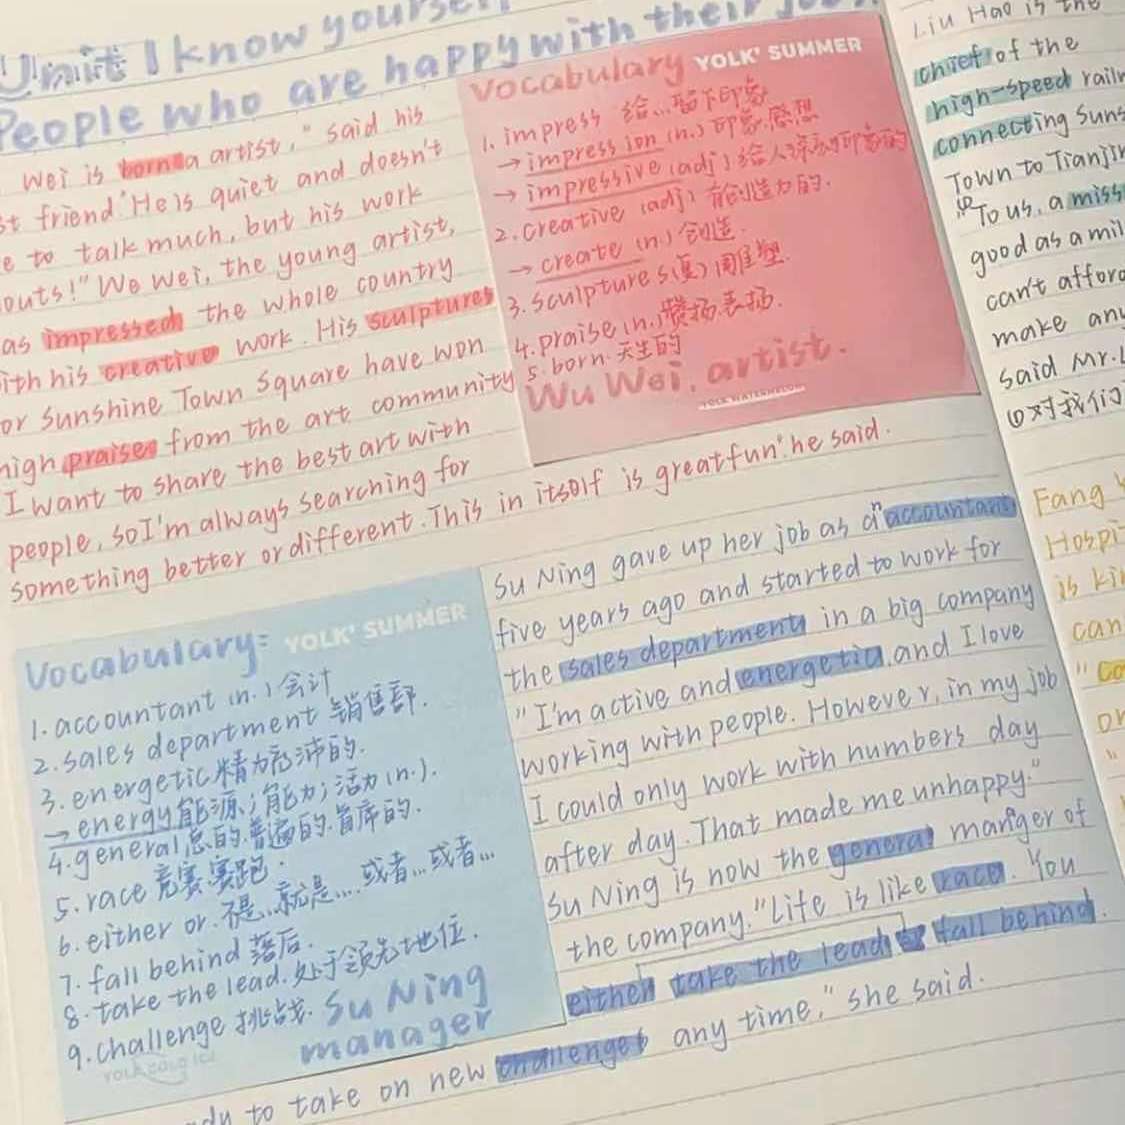 Unit 1 know yourself
People who are happy with their jobs
Wei is born a artist," said his
st friend "He is quiet and doesn't
e to talk much, but his work
outs!" We Wei, the young artist,
as impressed the whole country
ith his creative work. His sculptures
or Sunshine Town Square have won
high praise from the art community
I want to share the best art with
people, so I'm always searching for
something better or different. This in itself is great fun" he said.
Vocabulary YOLK' SUMMER
1. impress 给...留下印象
→ impression (n.) 印象.感想
→ impressive (adj) 给人深刻印象的
2. creative (adj) 有创造力的.
→ create (n.) 创造.
3. sculptures (复) 雕塑.
4. praise (n.) 赞扬.表扬.
5. born. 天生的
Wu Wei, artist.
YOLK WATERMELON
Vocabulary: YOLK' SUMMER
1. accountant (n.) 会计
2. sales department 销售部.
3. energetic 精力充沛的.
→ energy 能源;能力;活力 (n.).
4. general 总的.普遍的.首席的.
5. race 竞赛.赛跑.
6. either or. 不是...就是.... 或者...或者...
7. fall behind 落后.
8. take the lead. 处于领先地位.
9. challenge 挑战.
Su Ning
manager
YOLK COLD ICE
Su Ning gave up her job as an accountant
five years ago and started to work for
the sales department in a big company
"I'm active and energetic, and I love
working with people. However, in my job
I could only work with numbers day
after day. That made me unhappy."
Su Ning is now the general manger of
the company. "Life is like race. You
either take the lead or fall behind.
dy to take on new challenges any time," she said.
Liu Hao is the
chief of the
high-speed railw
connecting Suns
Town to Tianjin
"To us, a miss
good as a mil
can't afford
make any
said Mr.L
①对我们
Fang Y
Hospi
is kin
can
"co
or
"